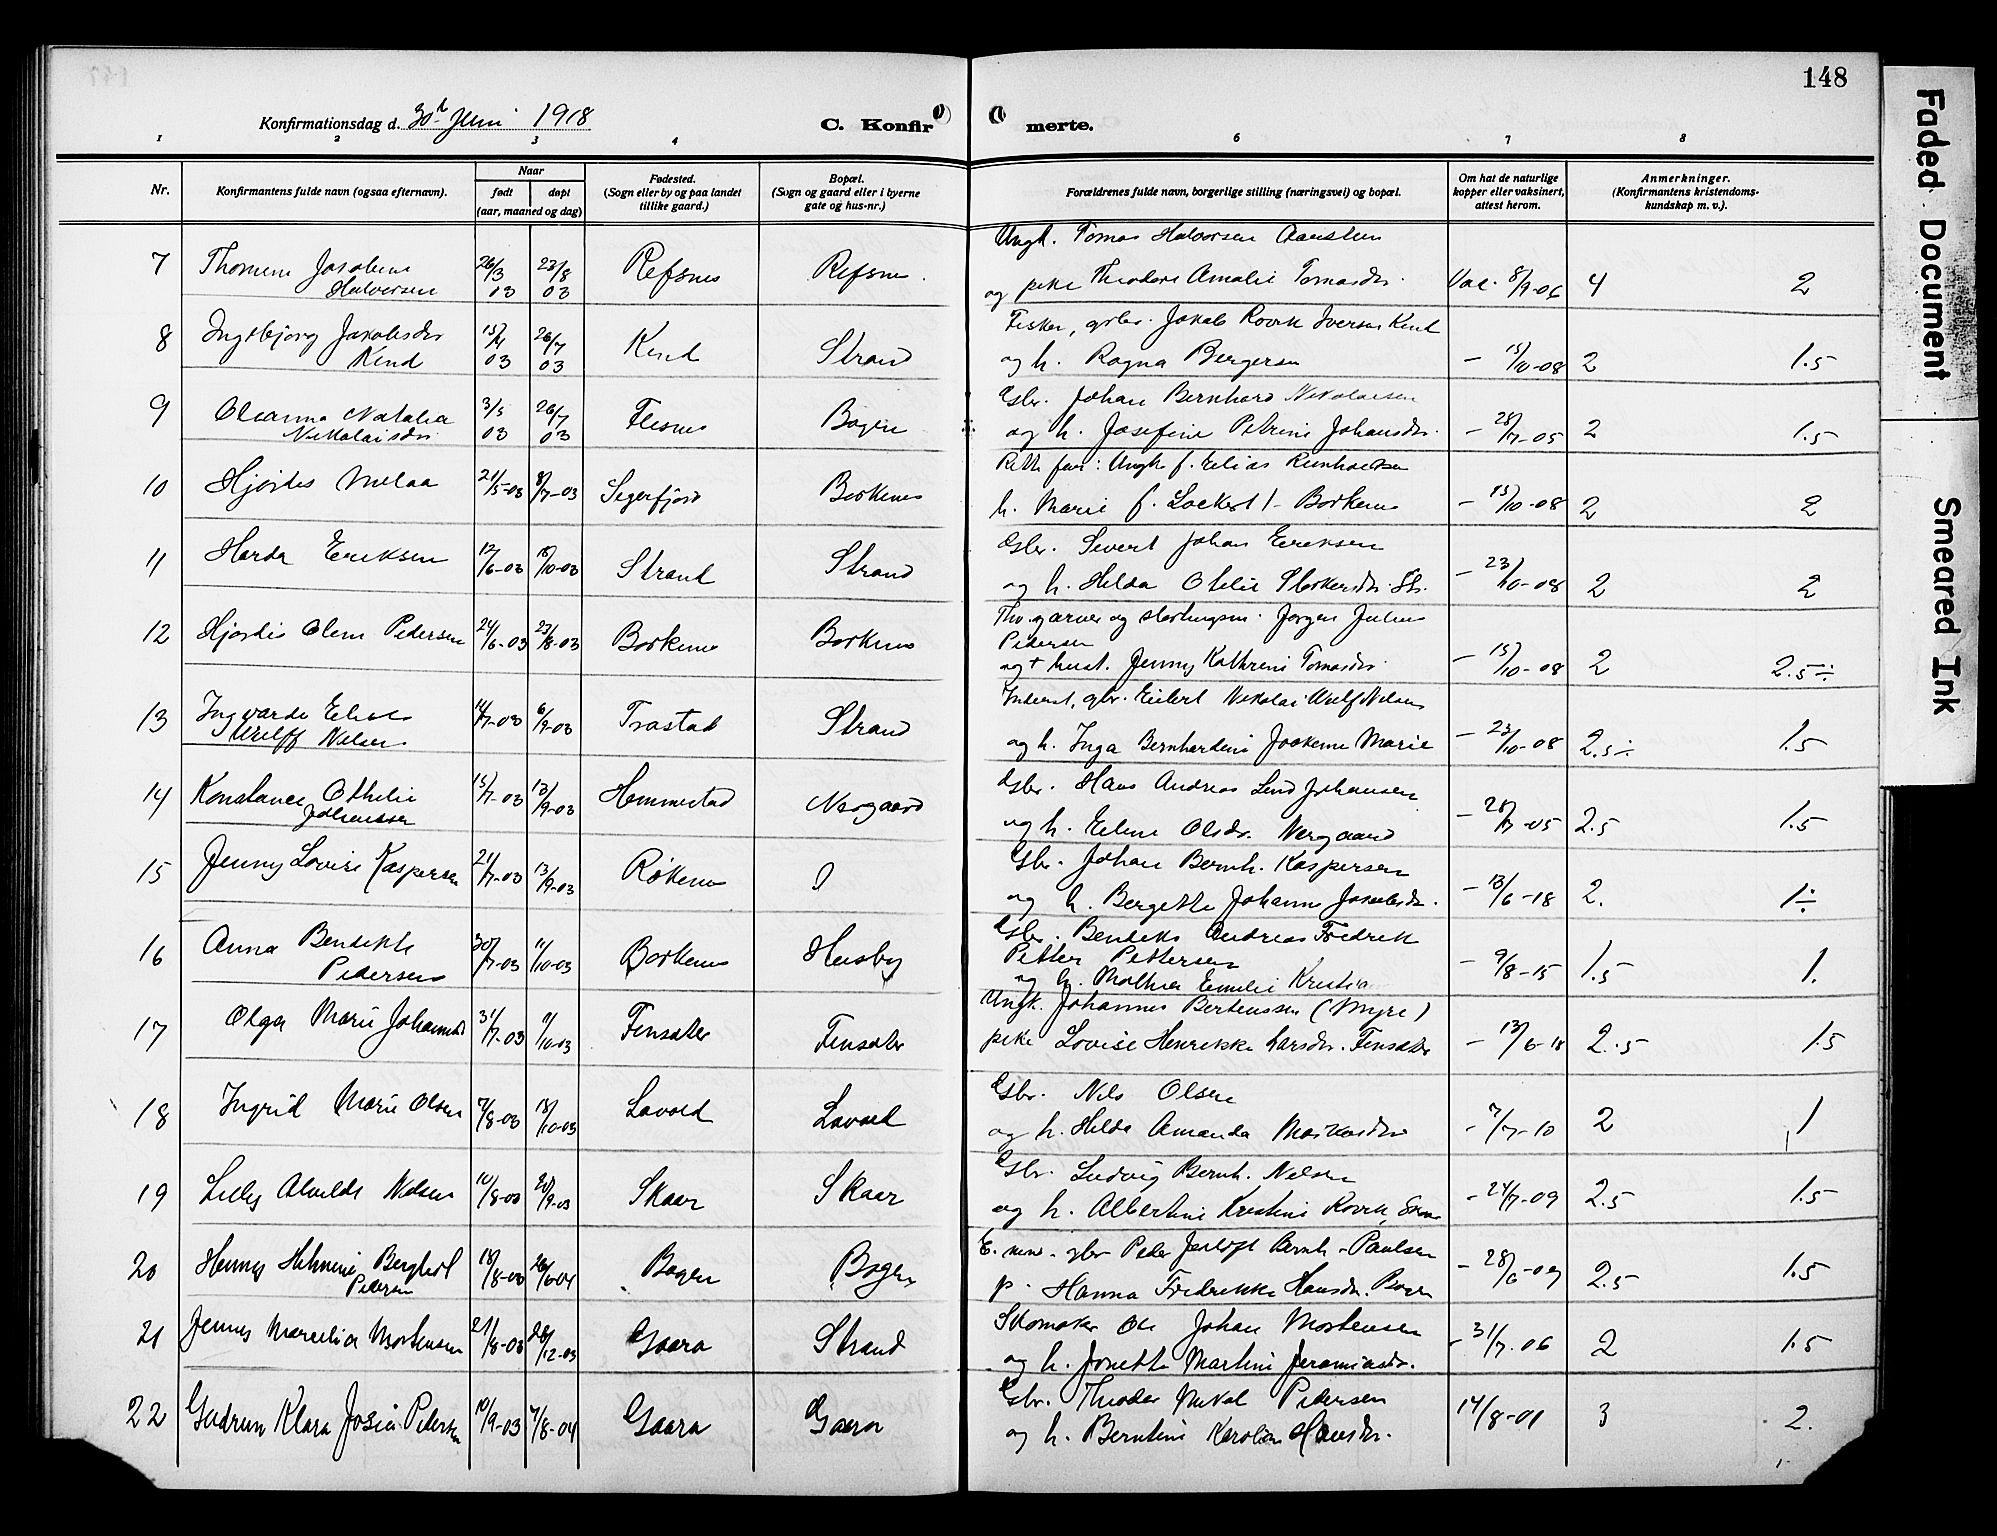 148
Konfirmationsdag d. 30t Juni 1918
C. Konfirmerte.
1 2 3 4 6 7 8
Nr.
Konfirmantens fulde navn (ogsaa efternavn).
Naar
født døpt
(aar, maaned og dag)
Fødested.
(Sogn eller by og paa landet
tillike gaard.)
Bopæl.
(Sogn og gaard eller i byerne
gate og hus-nr.)
Forældrenes fulde navn, borgerlige stilling (næringsvei) og bopæl.
Om hat de naturlige
kopper eller vaksinert,
attest herom.
Anmerkninger.
(Konfirmantens kristendoms-
kundskap m. v.).
7 Thomine Jakobine Halvorsen 26/3 03 23/8 03 Refsnes Refsnes
Ungk. Tomas Halvorsen
og pike Theodora Amalie Tomasdtr. Vac. 8/9-06 4 2
8 Ingebjørg Jakobsdtr Kind 15/4 03 26/7 03 Kind Strand
Fisker, gbr. Jakob Rovik Iversen Kind
og h. Ragna Bergersen - 15/10-08 2 1.5
9 Oleanna Natalia Nikolaisdtr 3/5 03 26/7 03 Flesnes Bogen
Gbr. Johan Bernhard Nikolaisen
og h. Josefine Petrine Johansdtr. - 28/7-05 2 1.5
10 Hjørdis Melaa 21/5-03 8/7-03 Sigerfjord Borkenes
h. Marie f. Lockert - Borkenes - 15/10-08 2 2
11 Harda Eriksen 12/6-03 18/10-03 Strand Strand
Gbr. Sivert Johan Eriksen
og h. Hilda Otelie - 23/10-08 2 2
12 Hjørdis Olem Pedersen 24/6-03 23/8-03 Borkenes Borkenes
garver og stortingsm. Jørgen Julius
Pedersen
og + hust. Jenny Kathrine Tomasdtr. - 15/10-08 2 2.5÷
13 Ingvarda Nilsen 14/7-03 6/9-03 Trastad Strand
Inderst, gbr. Eilert Nikolai Nilsen
og h. Inga Bernhardine Joakime Marie - 23/10-08 2.5÷ 1.5
14 Konstance Othelie Johansen 15/7-03 13/9-03 Hemmestad Nergaard
Gbr. Hans Andreas Lind Johansen
og h. Eline Olsdtr. Nergaard - 28/7-05 2.5 1.5
15 Jenny Lovise Kaspersen 21/7-03 13/9-03 Røkenes
Gbr. Johan Bernh. Kaspersen
og h. Bergette Johanne Jakobsdtr. - 13/6-18 2. 1÷
16 Anna Bendikte Pedersen 30/7-03 11/10-03 Borkenes Husby
Gbr. Bendiks Andreas Fredrik
Petter Pettersen
og h. Mathea Emilie - 9/8-15 1.5 1.
17 Olga Marie Johannesd 31/7-03 11/10-03 Finsæter Finsæter
Ungk. Johannes Berteussen (Myre)
pike Lovise Henrikke Larsdtr. Finsæter - 13/6-18 2.5 1.5
18 Ingrid Marie Olsen 7/8-03 18/10-03 Lavold Lavold
Gbr. Nils Olsen
og h. Hilda Amanda Markusdtr - 7/7-10 2 1
19 Lilly Alvilde Nilsen 10/8-03 20/9-03 Skaar Skaar
Gbr. Ludvig Bernh. Nilsen
og h. Albertine Kristine Rovik - 24/7-09 2.5 1.5
20 Henny Berghild Pedersen 18/8-03 26/6-04 Bogen Bogen
gbr Peder Bernh. Paulsen
p. Hanna Fredrikke Hansdtr. - 28/6-09 2.5 1.5
21 Jenny Marcelia Mortensen 21/8-03 26/12-03 Gaara Strand
Skomaker Ole Johan Mortensen
og h. Jonette Martine Jeramiasdr. - 31/7-06 2 1.5
22 Gudrun Klara Josia Pedersen 10/9-03 7/8-04 Gaara Gaara
Gbr. Theodor Mikal Pedersen
og h. Berntine Karoline Hansdtr. 14/8-01 3 2.
Faded Document
Smeared Ink